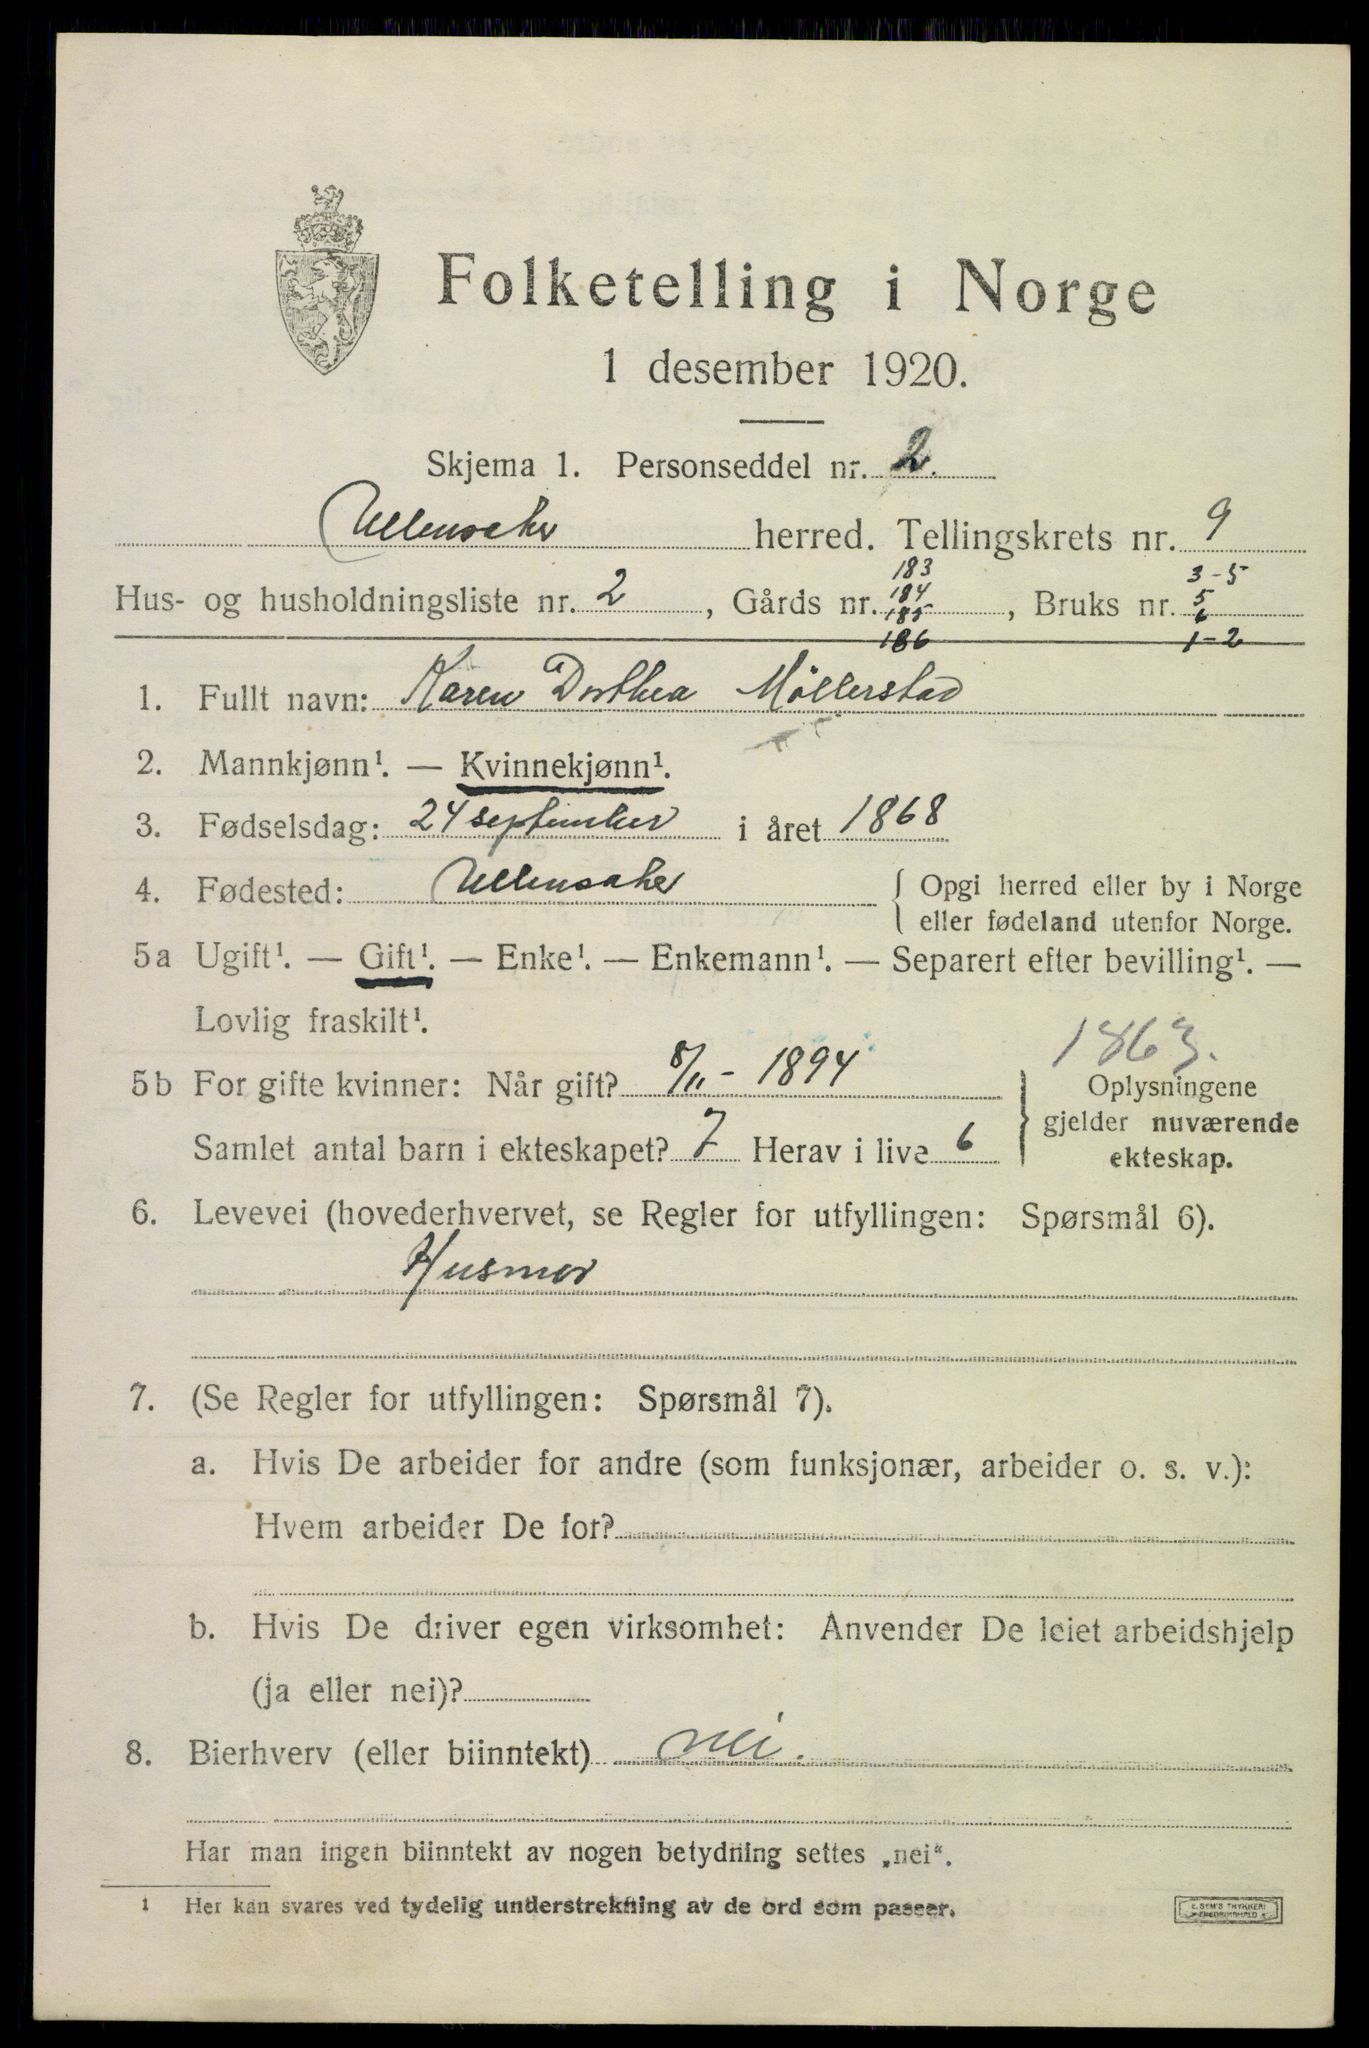 Folketelling i Norge
1 desember 1920.
Skjema 1. Personseddel nr. 2.
Ullensaker herred. Tellingskrets nr. 9
183 3-5
184 5
Hus- og husholdningsliste nr. 2, Gårds nr. 185, Bruks nr. 6
186 1-2
1. Fullt navn: Karen Dorthea Möllerstad
2. Mannkjønn¹. — Kvinnekjønn¹.
3. Fødselsdag: 24 september i året 1868
4. Fødested: Ullensaker { Opgi herred eller by i Norge
eller fødeland utenfor Norge.
5a Ugift¹. — Gift¹. — Enke¹. — Enkemann¹. — Separert efter bevilling¹. —
Lovlig fraskilt¹.
1863.
5b For gifte kvinner: Når gift? 8/11 - 1894
Samlet antal barn i ekteskapet? 7 Herav i live 6
} Oplysningene
gjelder nuværende
ekteskap.
6. Levevei (hovederhvervet, se Regler for utfyllingen: Spørsmål 6).
Husmor
7. (Se Regler for utfyllingen: Spørsmål 7).
a. Hvis De arbeider for andre (som funksjonær, arbeider o. s. v.):
Hvem arbeider De for?
b. Hvis De driver egen virksomhet: Anvender De leiet arbeidshjelp
(ja eller nei)?
8. Bierhverv (eller biinntekt) nei.
Har man ingen biinntekt av nogen betydning settes „nei“.
1 Her kan svares ved tydelig understrekning av de ord som passer.
E. SEM'S TRYKKERI
FREDRIKSHALD